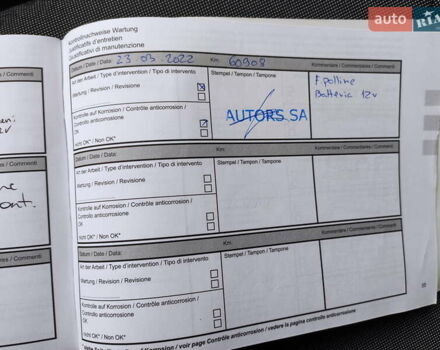 auto RIA
Kontrollnachweise Wartung
Justificatifs d'entretien
Giustificativi di manutenzione
Datum / Date / Data: 23 03. 2022 Km: 60908 Kommentare / Commentaires / Commenti
Art der Arbeit / Type d'intervention / Tipo di intervento Stempel / Tampon / Tampone F. polline
Wartung / Revision / Revisione Batteria 12v
Kontrolle auf Korrosion / Contrôle anticorrosion /
Controllo anticorrosione
OK AUTORS SA
Nicht OK* / Non OK*
Datum / Date / Data: Km: Kommentare / Commentaires / Commenti
Art der Arbeit / Type d'intervention / Tipo di intervento Stempel / Tampon / Tampone
Wartung / Revision / Revisione
Kontrolle auf Korrosion / Contrôle anticorrosion /
Controllo anticorrosione
OK
Nicht OK* / Non OK*
Datum / Date / Data: Km: Kommentare / Commentaires / Commenti
Art der Arbeit / Type d'intervention / Tipo di intervento Stempel / Tampon / Tampone
Wartung / Revision / Revisione
Kontrolle auf Korrosion / Contrôle anticorrosion /
Controllo anticorrosione
OK
Nicht OK* / Non OK*
/ voir page Contrôle anticorrosion / vedere la pagina controllo anticorrosione
/ Commenti
/ Commenti
ont.
/ Commenti